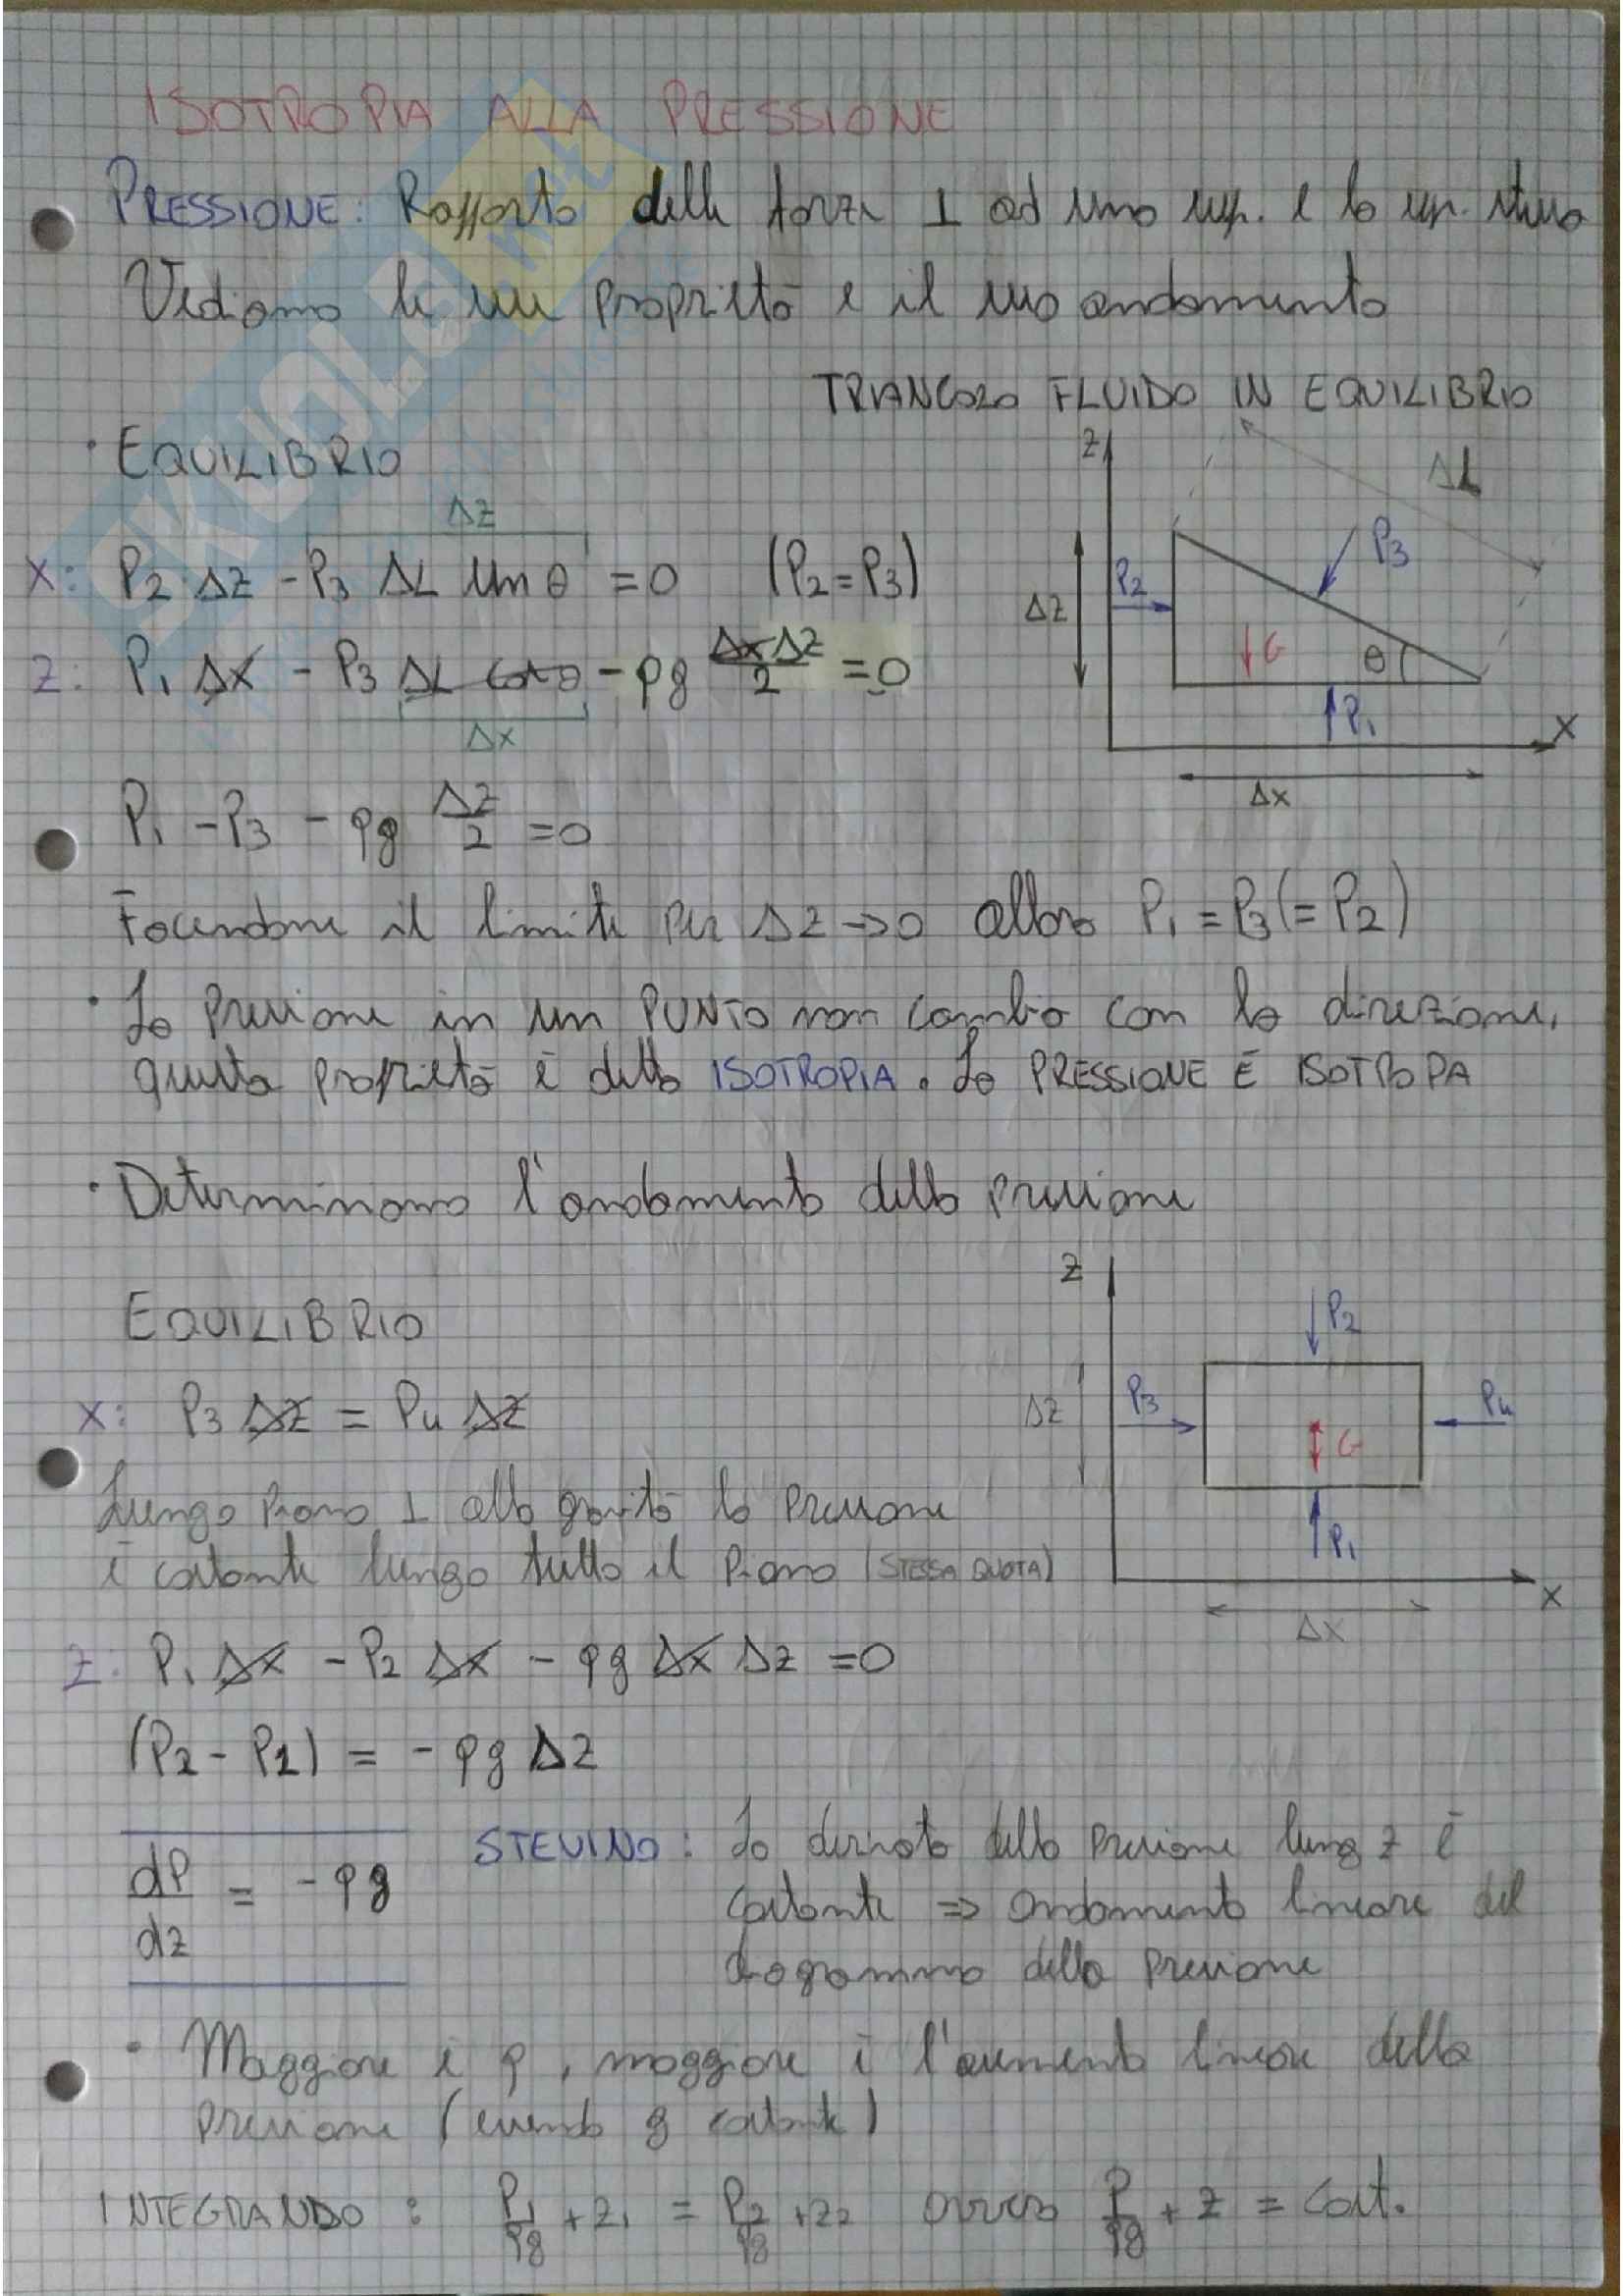 ISOTROPIA ALLA PRESSIONE
PRESSIONE: Rapporto delle forze ⊥ ad una sup. e la sup. stessa
Vediamo le sue proprietà e il suo andamento
TRIANGOLO FLUIDO IN EQUILIBRIO
• EQUILIBRIO
Δz
x: P2 · Δz - P3 ΔL sen θ = 0 (P2 = P3)
z: P1 Δx - P3 ΔL cos θ - ρg ΔxΔz/2 = 0
Δx
z
ΔL
P3
P2
Δz
G
θ
P1
x
Δx
P1 - P3 - ρg Δz/2 = 0
Facendone il limite per Δz → 0 allora P1 = P3 (= P2)
• La pressione in un PUNTO non cambia con la direzione,
questa proprietà è detta ISOTROPIA. La PRESSIONE È ISOTROPA
• Determiniamo l'andamento della pressione
EQUILIBRIO
x: P3 Δz = P4 Δz
Lungo piano ⊥ alla gravità la pressione
è costante lungo tutto il piano (STESSA QUOTA)
z
P2
P3
P4
Δz
G
P1
x
Δx
z: P1 Δx - P2 Δx - ρg Δx Δz = 0
(P2 - P1) = - ρg Δz
dP/dz = - ρg
STEVINO: La derivata della pressione lung z è
costante ⇒ andamento lineare del
diagramma della pressione
• Maggiore è ρ, maggiore è l'aumento lineare della
pressione (essendo g costante)
INTEGRANDO: P1/ρg + z1 = P2/ρg + z2 ovvero P/ρg + z = cost.
SKUOLA.net